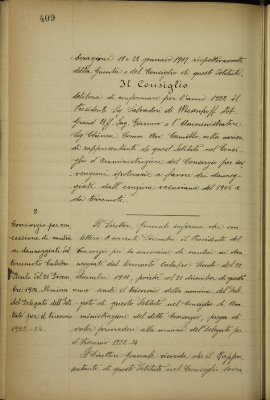 409
berazioni 18 e 22 gennaio 1907 rispettivamente
della Giunta e del Consiglio di questo Istituto
Il Consiglio
delibera di confermare per l'anno 1922 il
Presidente Sig. Salvadori di Wiesenhoff Not.
Grand Uff. Ing. Giacomo e l'Amministratore
Sig. Comm. Avv. Camillo nella carica
di rappresentanti di questo Istituto nel Consi-
glio d'Amministrazione del Consorzio per sov-
venzioni ipotecarie a favore dei danneg-
giati dall'eruzione vesuviana del 1906 e
da terremoti.
8
Consorzio per con-
cessione di mutui
ai danneggiati dal
terremoto Calabro
1908. Nomina
del Delegato dell'Isti-
tuto per il triennio
1922-24.
Il Direttore Generale informa che con
lettera Dicembre il Presidente del
Consorzio per la concessione di mutui ai dan-
neggiati dal terremoto Calabro del 28
Dicembre 1908, poiché col 31 dicembre di questo
anno scade il triennio della nomina del Dele-
gato di questo Istituto nel Consiglio di Am-
ministrazione del detto Consorzio, prega di
voler provvedere alla nomina del Delegato per
il triennio 1922-24
Il Direttore Generale ricorda che il Rappre-
sentante di questo Istituto nel Consiglio